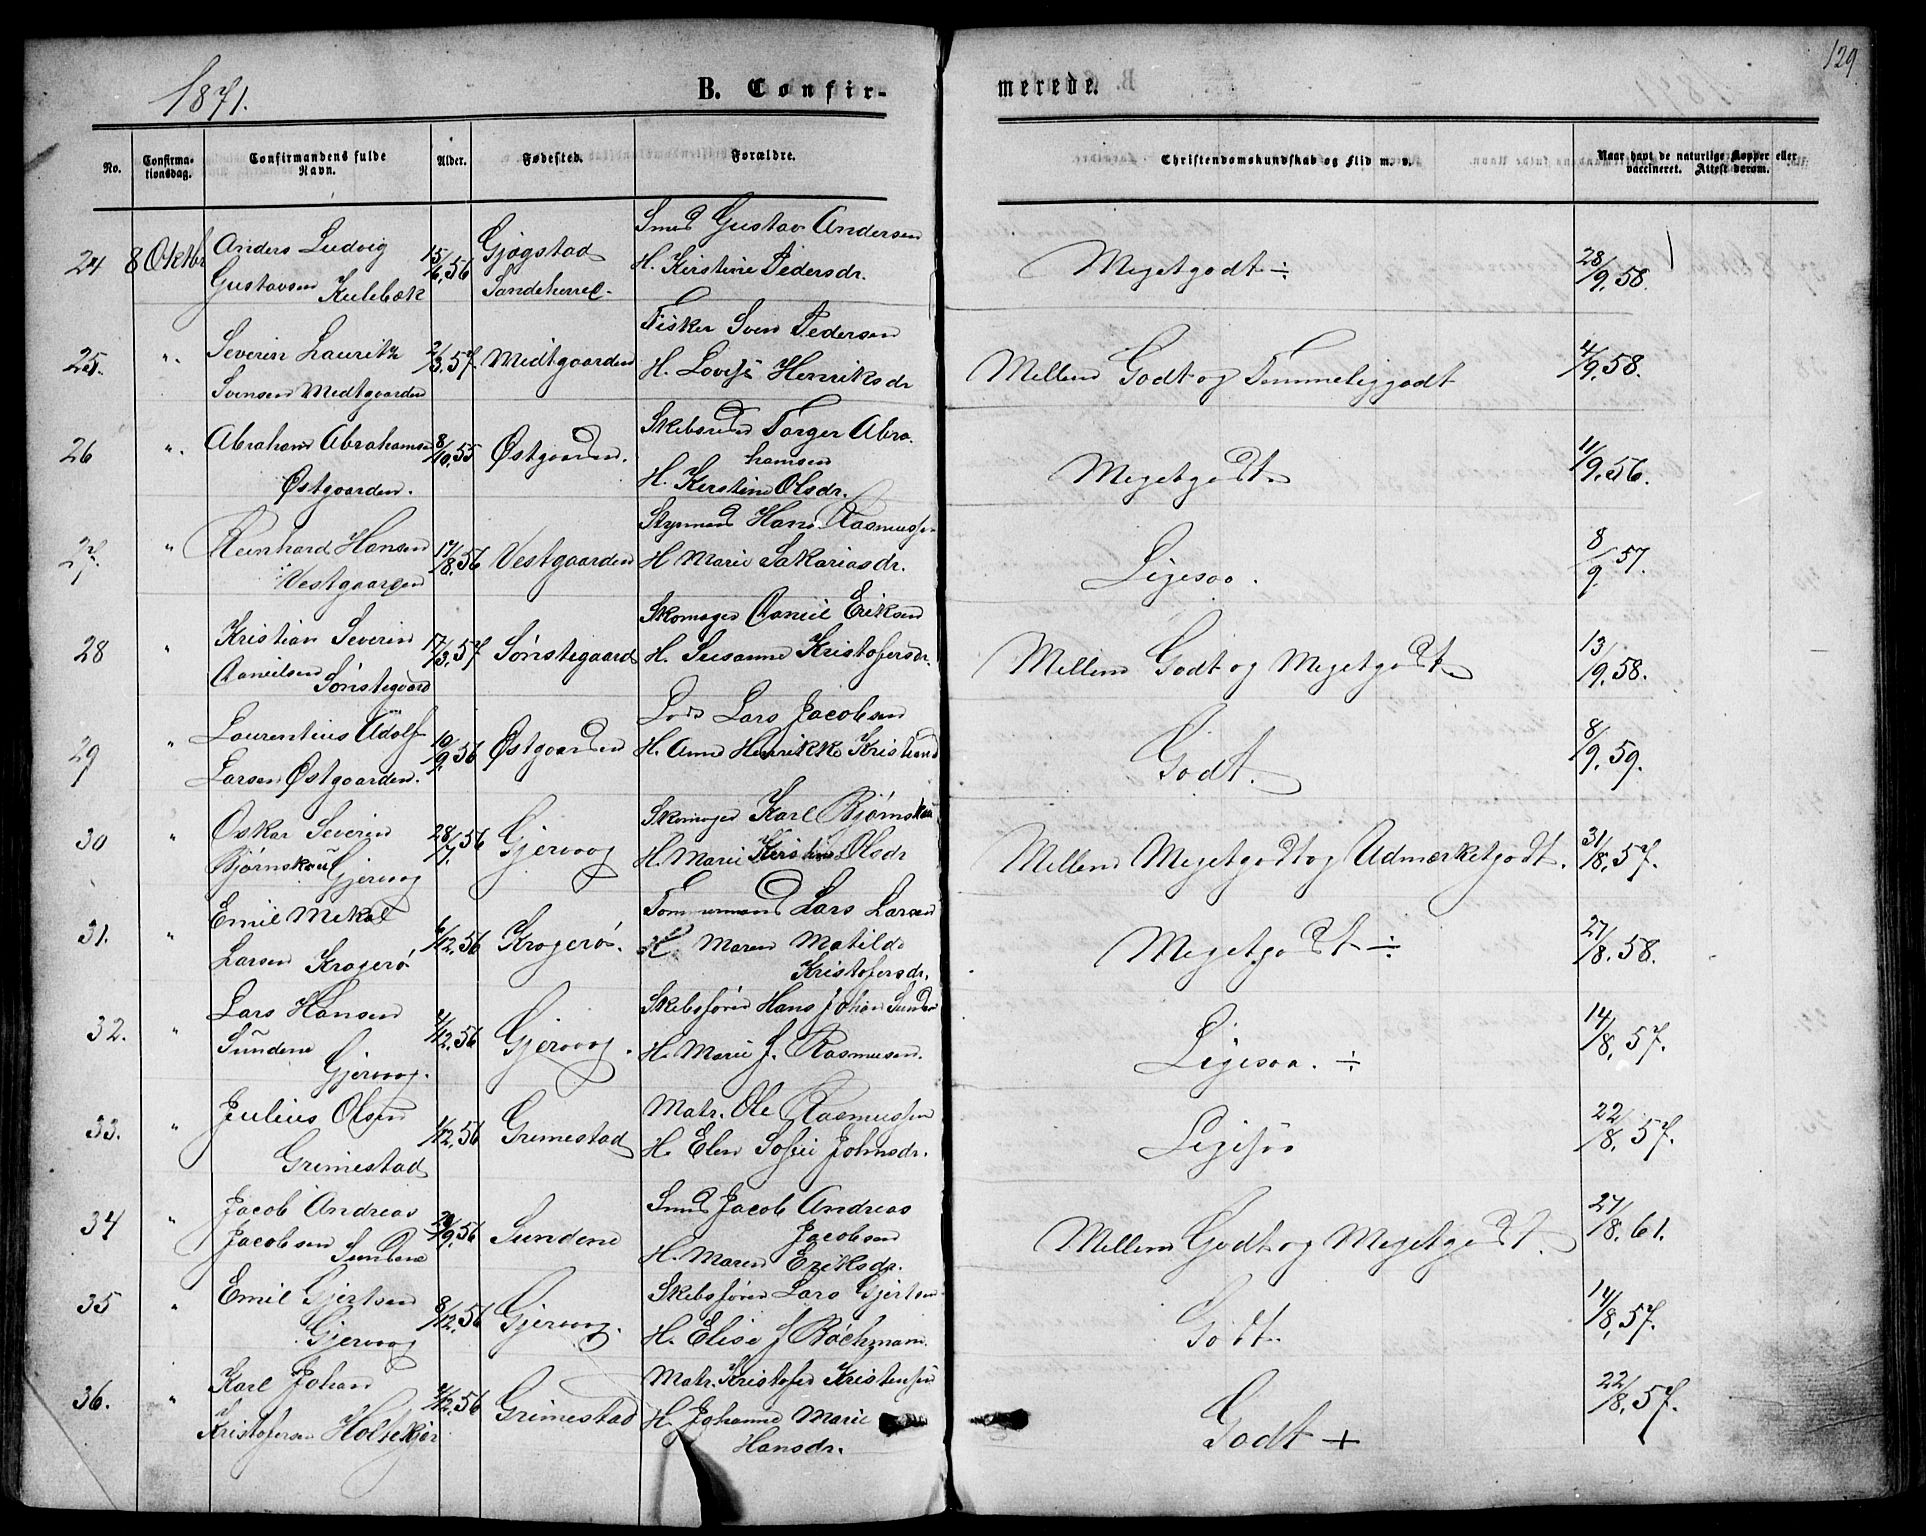 129
1871.
B. Confir-
merede.
No.
Confirma-
tionsdag.
Confirmandens fulde
Navn.
Alder.
Fødested.
Forældre.
Christendomskundskab og Flid m. v.
Naar havt de naturlige Kopper eller
vaccineret. Attest derom.
24 8 Oktbr Anders Ludvig
Gustavsen Kulebæk
15/6.56 Gjøgstad
Sandeherred.
Smed Gustav Andersen
H. Kirstine Pedersdr.
Megetgodt ÷ 28/9.58.
25. ". Severin Lauritz
Svensen Midtgaarden
2/3.57. Midtgaarden
Fisker Sven Pedersen
H. Lovise Henriksdr
Mellem Godt og Temmeliggodt 4/9.58.
26 ". Abraham Abrahamsen
Østgaarden.
8/10.55 Østgaarden.
Skibstømd Targer Abra-
hamsen
H. Kirstine Olsdr.
Megetgodt. 11/9.56.
27. " Reinhard Hansen
Vestgaarden
17/8.56 Vestgaarden
Styrmand Hans Rasmussen
H Marie Sakariasdr.
Ligesaa. 8/9 57.
28 " Kristian Severin
Danielsen Sønstegaard
17/3.57 Sønstegaard
Skomager Daniel Eriksen
H. Susanne Kristofersdr.
Mellem Godt og Megetgodt. 13/9.58.
29 " Laurentius Adolf
Larsen Østgaarden.
10/9.56 Østgaarden
Lods Lars Jacobsen
H. Anne Henrikke Kristiansd
Godt. 8/9.59.
30 " Oskar Severin
Bjørnskau Gjervog
28/7.56 Gjervog
Skomager Karl Bjørnskau
H. Marie Kirstine Olsdr
Mellem Megetgodt og Udmærketgodt. 31/8.57.
31. " Emil Mikal
Larsen Krogerø
6/12.56 Krogerø.
Tømmermand Lars Larsen
H. Maren Matilde
Kristofersdr.
Megetgodt ÷ 27/8.58.
32. " Lars Hansen
Sundene
Gjervog.
4/12.56 Gjervog.
Skibsfører Hans Johan Sunden
H. Marie J. Rasmusen.
Ligesaa. ÷ 14/8.57.
33. " Julius Olsen
Grimestad
1/12.56 Grimestad
Matr. Ole Rasmussen
H. Elen Sofie Johnsdr.
Ligesaa 22/8.57.
34 " Jacob Andreas
Jacobsen Sundene
29/9.56 Sundene
Smed Jacob Andreas
Jacobsen
H. Maren Eriksdr.
Mellem Godt og Megetgodt. 27/8.61.
35 " Emil Gjertsen
Gjervog
8/12.56 Gjervog.
Skibsfører Lars Gjertsen
H. Elise J Bøchman.
Godt. 14/8.57.
36. " Karl Johan
Kristofersen Holtekjær
2/12.56 Grimestad
Matr. Kristofer Kristensen
H. Johanne Marie
Hansdr.
Godt + 22/8.57.